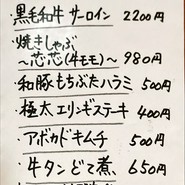 黒毛和牛 サーロイン 2200円
・焼きしゃぶ
～芯芯(牛モモ)～ 980円
・和豚もちぶたハラミ 500円
・極太エリンギステーキ 400円
・アボカドキムチ 500円
・牛タン どて煮、 650円